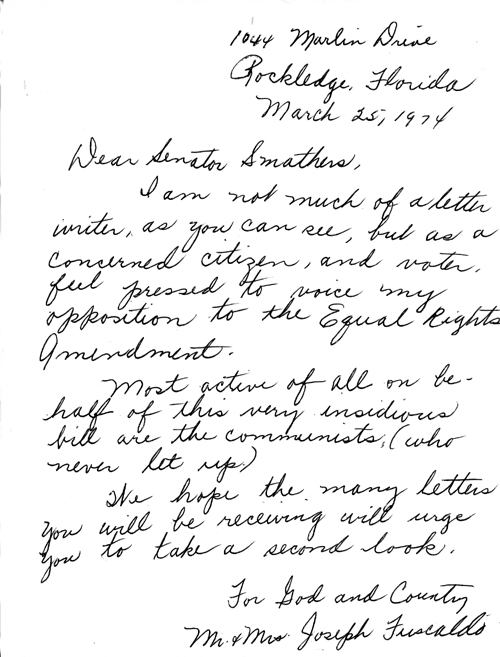 1044 Marlin Drive
Rockledge, Florida
March 25, 1974
Dear Senator Smathers,
I am not much of a letter
writer, as you can see, but as a
concerned citizen, and voter,
feel pressed to voice my
opposition to the Equal Rights
Amendment.
Most active of all on be-
half of this very insidious
bill are the communists, (who
never let up)
We hope the many letters
you will be receiving will urge
you to take a second look.
For God and Country
Mr. & Mrs. Joseph Fuscaldo